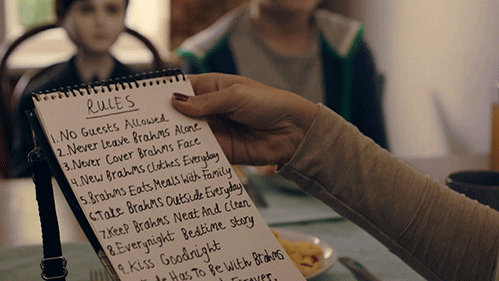 RULES
1. No Guests Allowed
2. Never Leave Brahms Alone
3. Never Cover Brahms Face
4. New Brahms Clothes Everyday
5. Brahms Eats Meals With Family
6. Take Brahms Outside Everyday
7. Keep Brahms Neat And Clean
8. Everynight Bedtime Story
9. Kiss Goodnight
Has To Be With Brahms
Forever.